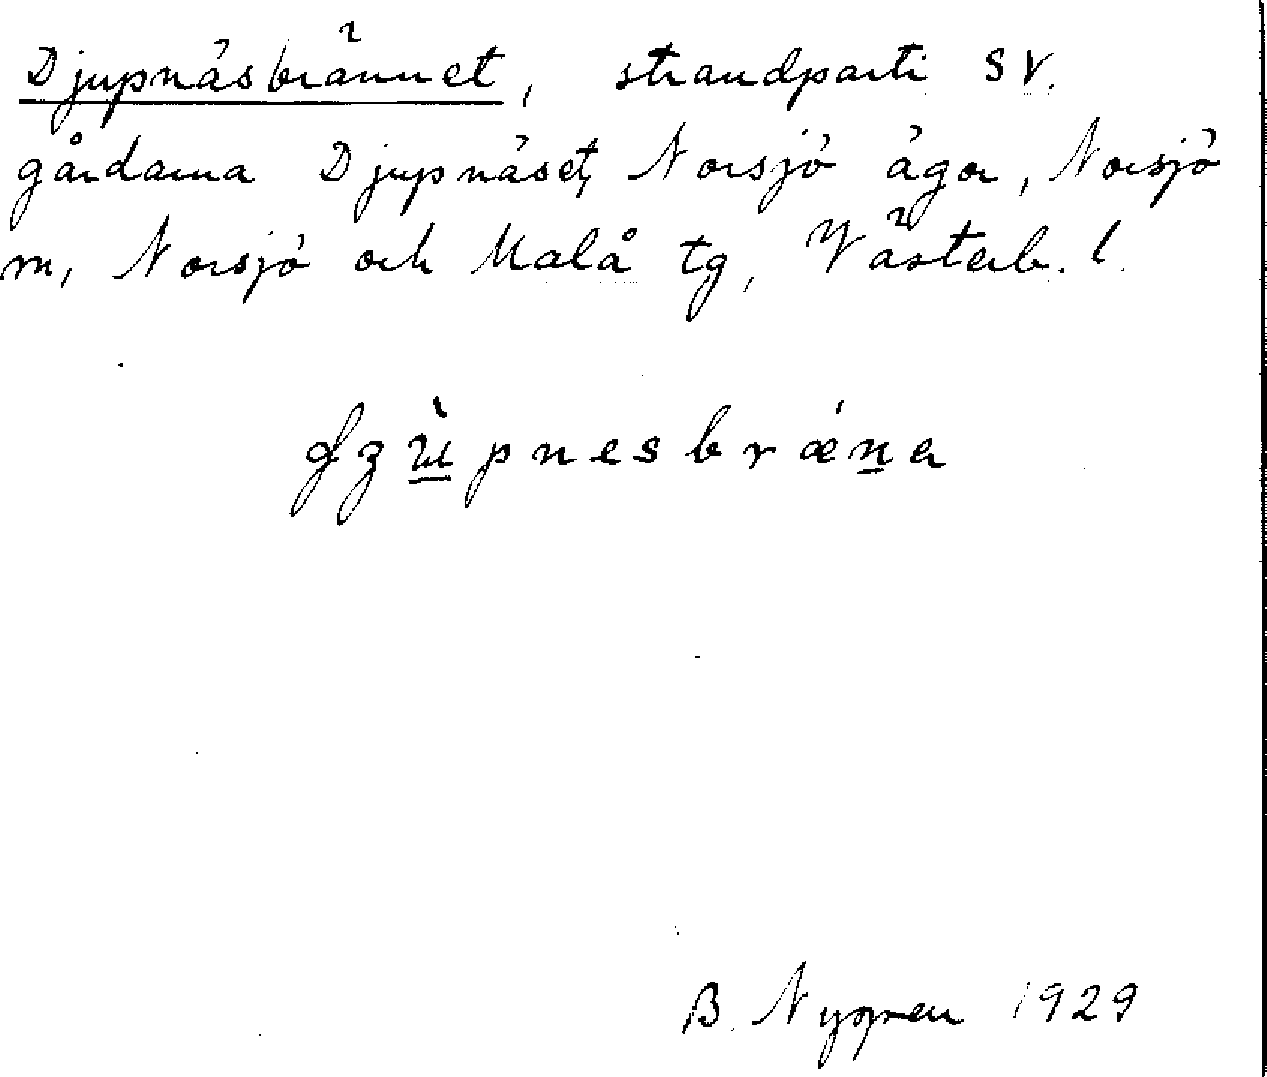 Djupnäsbrännet, strandparti SV.
gårdarna Djupnäset, Norsjö ägor, Norsjö
m, Norsjö och Malå tg, Västerb. l.
B. Nygren 1929